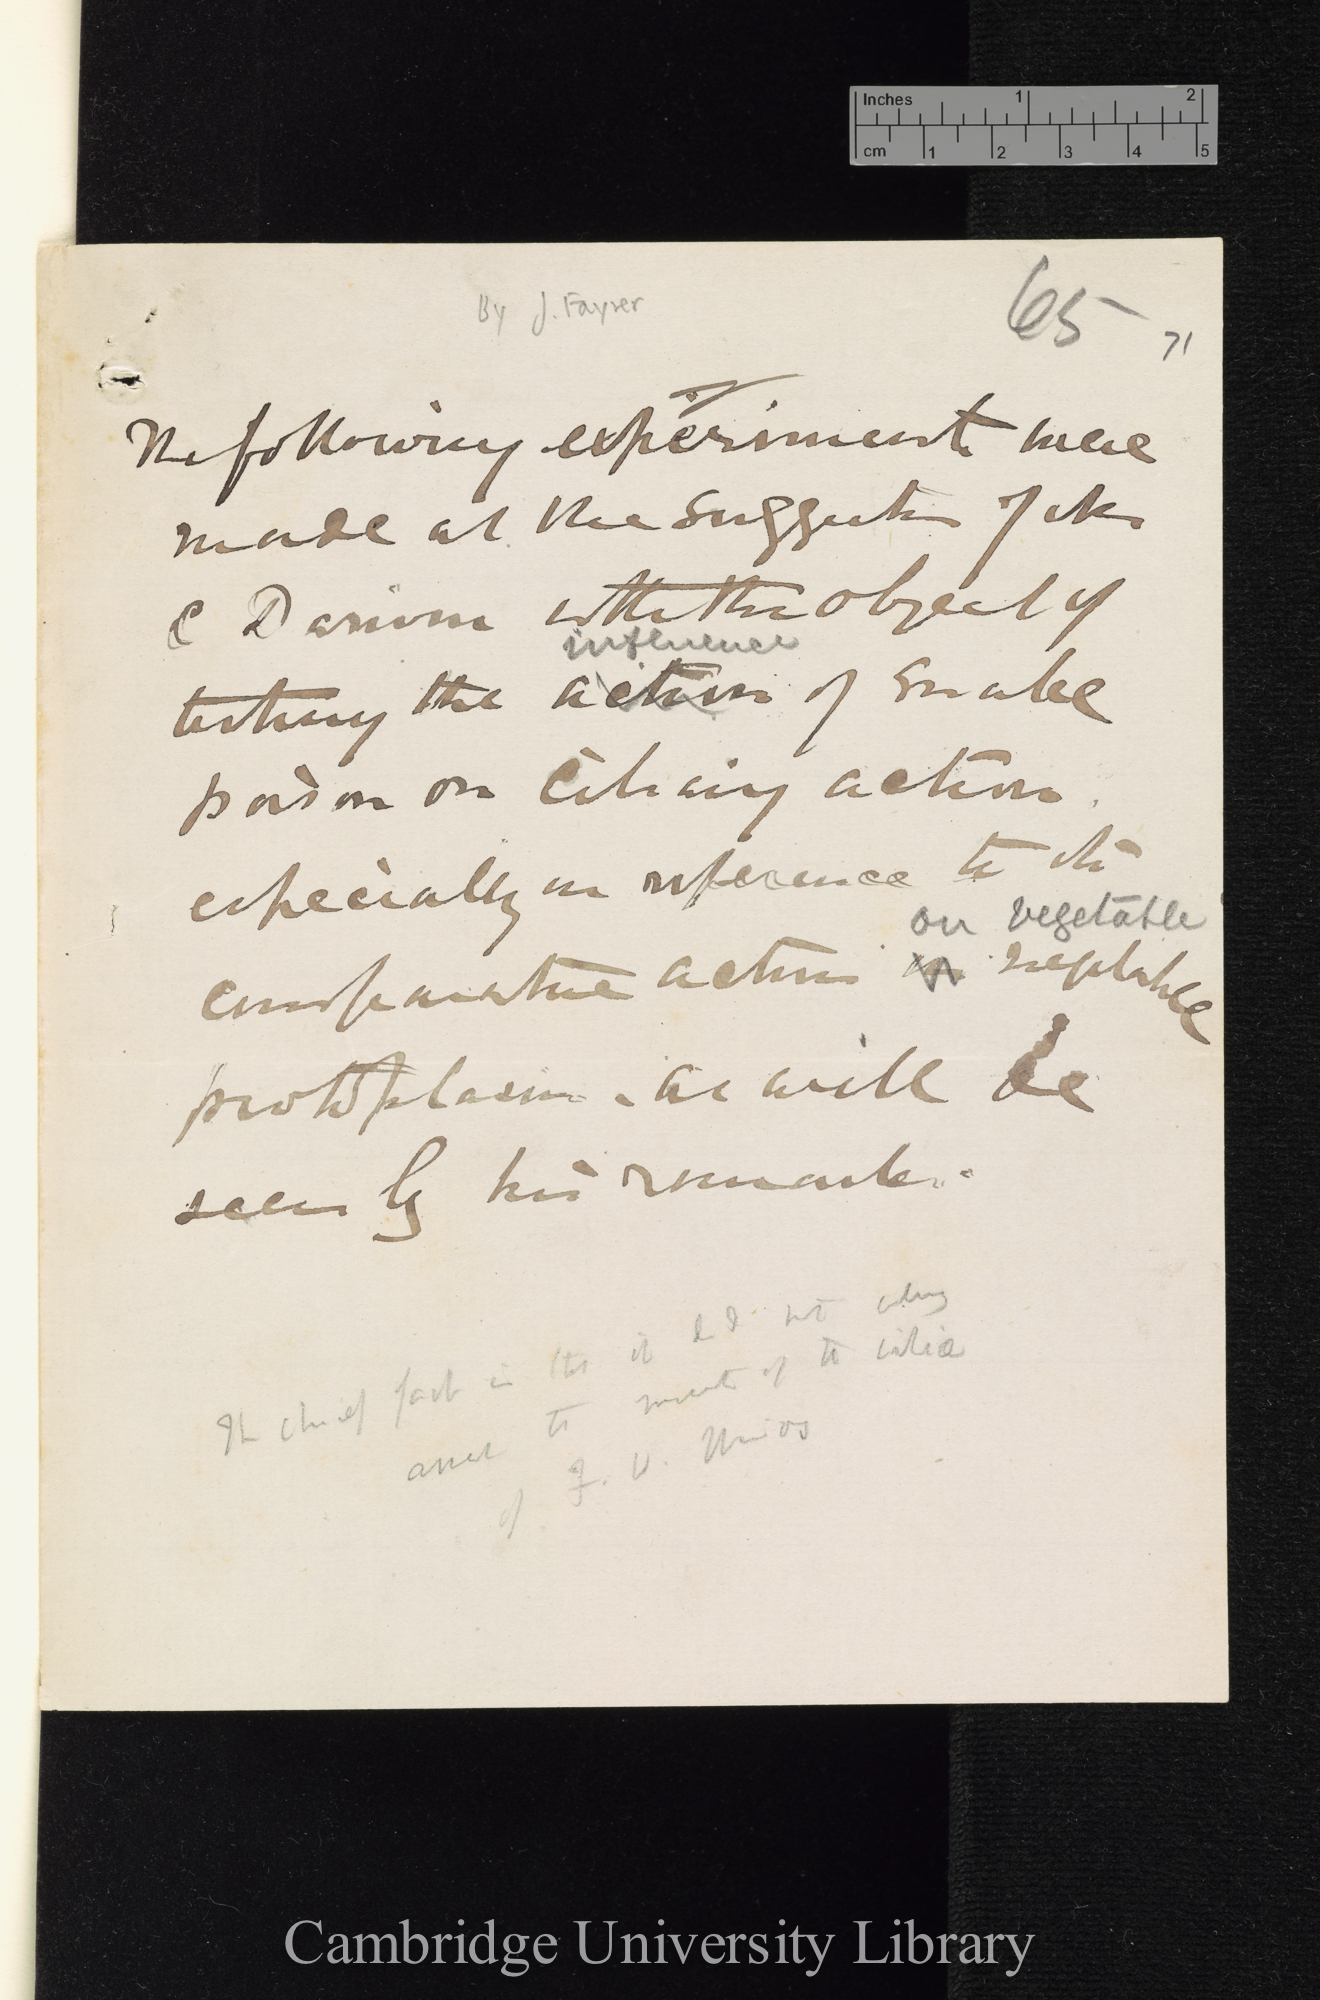 Inches 1 2
cm 1 2 3 4 5
By J. Fayrer
65
71
The following experiments were
made at the suggestion of Mr
C Darwin with the object of
influence
testing the action of snake
poison on Ciliary action
especially in reference to its
on vegetable
comparative action on vegetable
protoplasm. as will be
seen by his remarks.
The chief fact is tht it did not
arrest the movement of the cilia
of F. W.
Cambridge University Library